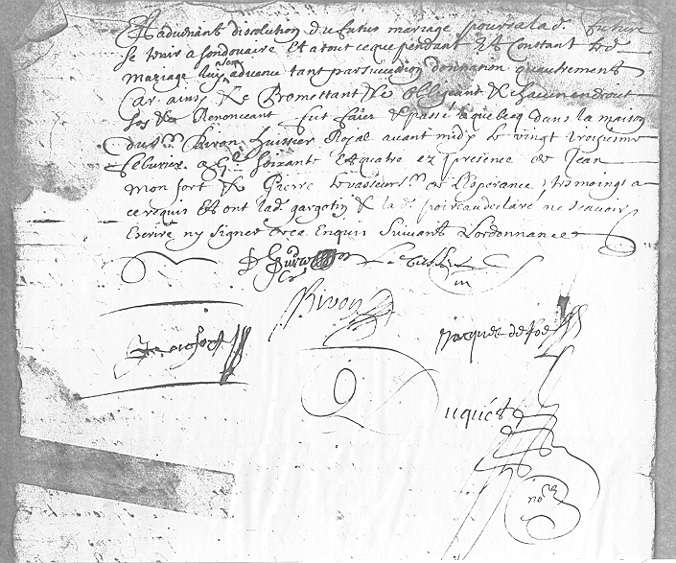 Et advenant disolution du futur mariage pourra lad. future
se tenir a son douaire Et a tout ce que pendant Et Constant led.
mariage luy sera advenu tant par succession donnation qu autrement
Car ainsy &c Promettant &c obligeant &c chacun en droit
soy &c Renonceant fut faict & passé a quebecq dans la maison
dud sr. Biron huissier Royal avant midy le vingt troisiesme
febvrier a gbc soixante Et quatre ez presence de Jean
monfort & Pierre levasseur sr. de L'esperance tesmoings a
ce requis Et ont lad. gargotin & la d. poireau declaré ne scavoir
Escrire ny signer de ce Enquis suivant Lordonnance
Biron
Jacques de foe
monfort
uquét
no.re